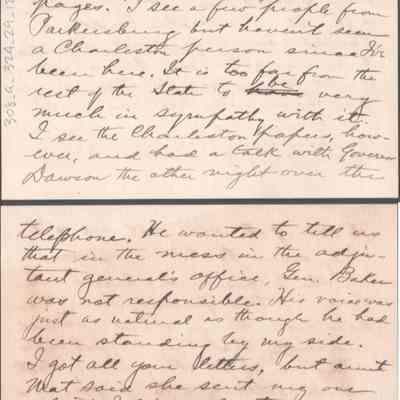 pages. I see a few people from
Parkersburg but haven't seen
a Charleston person since I've
been here. It is too far from the
rest of the State to be very
much in sympathy with it.
I see the Charleston papers, how-
ever, and had a talk with Governor
Dawson the other night over this
telephone. He wanted to tell us
that in the mess in the adju-
tant general's office, Gen. Baker
was not responsible. His voice was
just as natural as though he had
been standing by my side.
I got all your letters, but aunt
Mat said she sent my one